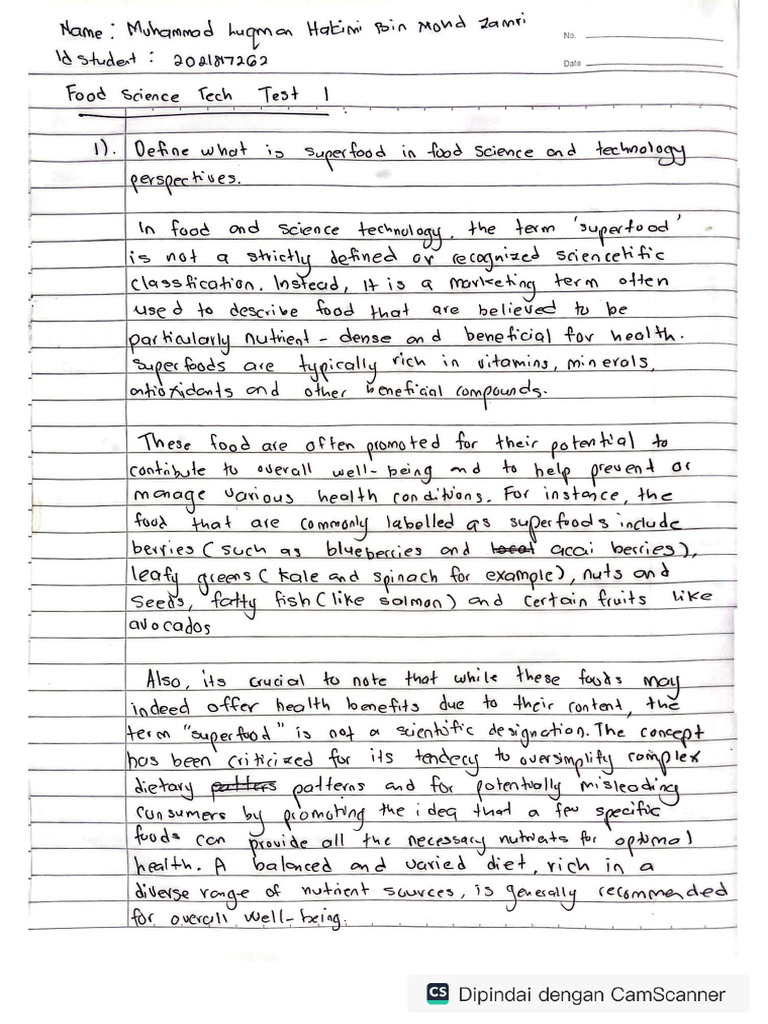 Name : Muhammad Luqman Hakimi Bin Mohd Zamri
No.
Id student : 2021817262
Date
Food Science Tech Test 1
1). Define what is superfood in food science and technology
perspectives.
In food and science technology, the term 'superfood'
is not a strictly defined or recognized sciencetific
classfication. Instead, It is a marketing term often
used to describe food that are believed to be
particularly nutrient - dense and beneficial for health.
Superfoods are typically rich in vitamins, minerals,
antioxidants and other beneficial compounds.
These food are often promoted for their potential to
contribute to overall well-being and to help prevent or
manage various health conditions. For instance, the
food that are commonly labelled as superfoods include
berries (such as blueberries and acai berries),
leafy greens ( kale and spinach for example), nuts and
Seeds, fatty fish (like salmon) and certain fruits like
avocados
Also, its crucial to note that while these foods may
indeed offer health benefits due to their content, the
term "superfood" is not a scientific designation. The concept
has been criticized for its tendecy to oversimplify complex
dietary patterns and for potentially misleading
consumers by promoting the idea that a few specific
foods can provide all the necessary nutrients for optimal
health. A balanced and varied diet, rich in a
diverse range of nutrient sources, is generally recommended
for overall well-being.
CS Dipindai dengan CamScanner